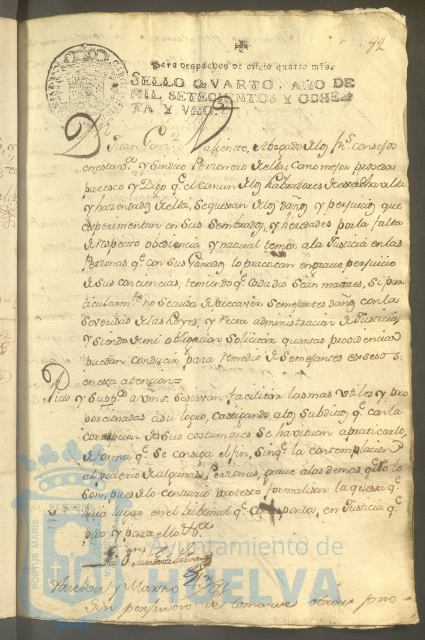 92
Para despachos de oficio quatro mrs.
SELLO QVARTO, AÑO DE
MIL SETECIENTOS Y OCHEN-
TA Y VNO.
Dn Juan Valiente, Abogado de los Rs. consejos
en esta va. y Sindico Personero de ella, como mejor proceda
paresco y Digo qe. el comun de los Labradores de esta dha villa
y hazendados de ella, se quexan de los daños y perjuicios que
experimentan en sus sembrados, y heredades por la falta
de respecto obediencia y natural temor a la Justicia en las
Personas qe. con sus Ganados lo procacan en grave perjuicio
de sus conciencias, temiendo qe. cada dia sean maiores, si par-
ticularmte. no se cuida de precaver semejantes daños con la
severidad de las Leyes, y recta administracion de Justicia,
y siendo de mi obligacion solicitar quantas providencias
puedan conducir para remedio de semejantes excesos
en esta atencion=
Pido y Suppco. a vms. se sirvan facilitar las mas utiles y pro
porcionadas a su logro, castigando a los subditos qe. con la
corrupcion de sus costumbres se havituan a praticarlo,
de forma qe. se consiga el fin, sin qe. la contemplacion
al poderio de algunas Personas, grave a las demas qe. no lo
son, pues de lo contrario protesto formalizar la quexa qe.
haia lugar en el tribunal qe. corresponda, en Justicia qe.
pido y para ello &a.
Ayuntamiento de
HUELVA
PORTUS MARIS
Huelva y Marzo
Sin perjuicio de tomarse otras pro-